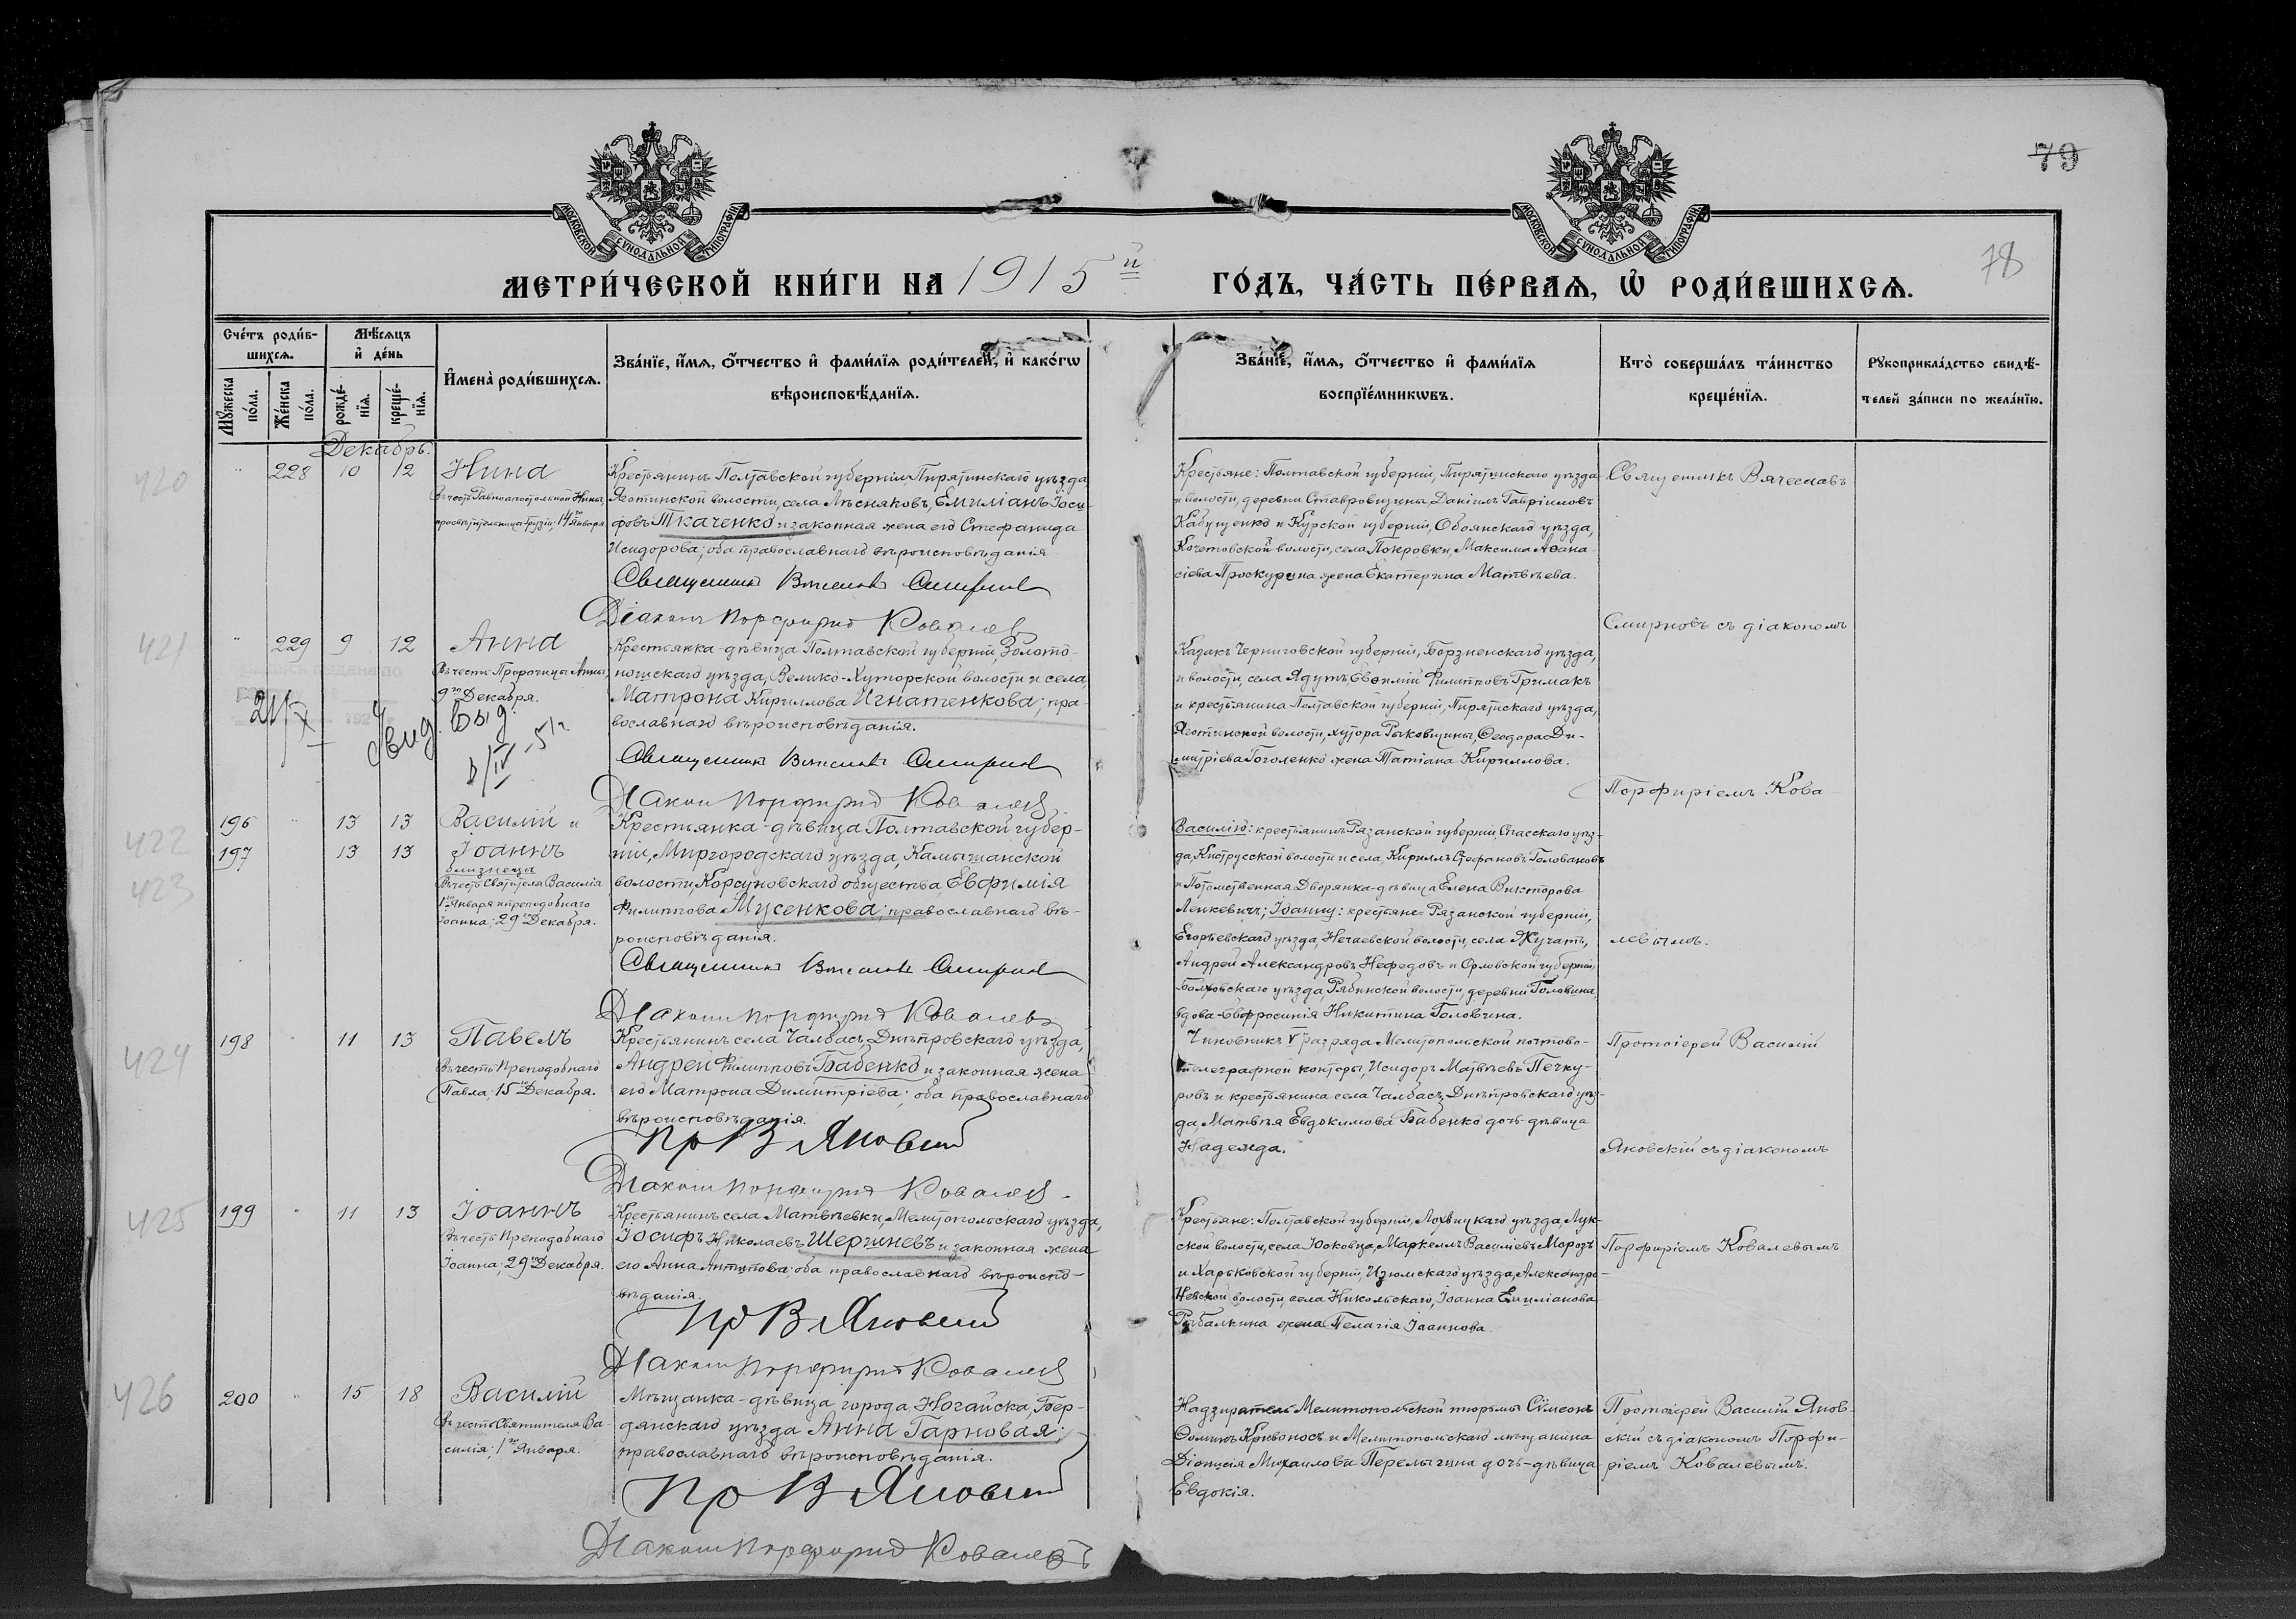 79
78
МОСКОВСКОЙ СѴНОДАЛЬНОЙ ТИПОГРАФІИ
МОСКОВСКОЙ СѴНОДАЛЬНОЙ ТИПОГРАФІИ
МЕТРИ́ЧЕСКОЙ КНИ́ГИ НА 1915 й
ГО́ДЪ, ЧА́СТЬ ПЕ́РВАѦ, Ѡ҆ РОДИ́ВШИХСѦ.
Сче́тъ роди́в-
шихсѧ.
Мꙋ́жеска по́ла.
Же́нска по́ла.
Мѣ́сѧцъ
и҆ де́нь
рожде́-
нїѧ.
креще́-
нїѧ.
И҆мена̀ роди́вшихсѧ.
Зва́нїе, и҆́мѧ, ѻ҆́тчество и҆ фами́лїѧ роди́телей, и҆ како́гѡ
вѣроисповѣ́данїѧ.
Зва́нїе, и҆́мѧ, ѻ҆́тчество и҆ фами́лїѧ
воспрїе́мникѡвъ.
Кто̀ соверша́лъ та́инство
креще́нїѧ.
Рꙋкоприкла́дство свидѣ́-
телей за́писи по жела́нїю.
Декабрь.
420
228 10 12 Нина
Въ честь Равноапостольной Нины,
просвѣтительницы Грузіи; 14го Января
Крестьянинъ Полтавской губерніи, Пирятинскаго уѣзда,
Яготинской волости, села Лѣсняковъ, Емиліанъ Іоси-
фовъ Ткаченко и законная жена его Стефанида
Исидорова; оба православнаго вѣроисповѣданія
Священникъ Вячеславъ Смирновъ
Діаконъ Порфирій Ковалевъ
Крестьяне: Полтавской губерніи, Пирятинскаго уѣзда
и волости, деревни Ставровщины, Даніилъ Гавріиловъ
Кабушенко и Курской губерніи, Обоянскаго уѣзда,
Кочетовской волости, села Покровки, Максима Аѳана-
сіева Проскурина жена Екатерина Матвѣева.
Священникъ Вячеславъ
Смирновъ съ діакономъ
421
229 9 12 Анна
Въ честь Пророчицы Анны,
9го Декабря.
Свид. выд.
Крестьянка-дѣвица Полтавской губерніи, Золото-
ношскаго уѣзда, Велико-Хуторской волости и села,
Матрона Кириллова Игнатенкова; пра-
вославнаго вѣроисповѣданія.
Священникъ Вячеславъ Смирновъ
Діаконъ Порфирій Ковалевъ
Казакъ Черниговской губерніи, Борзненскаго уѣзда,
и волости, села Ядутъ, Евѳимій Филипповъ Гримакъ
и крестьянина Полтавской губерніи, Пирятинскаго уѣзда,
Яготинской волости, хутора Рыковщины, Ѳеодора Ди-
митріева Гоголенко жена Татіана Кириллова.
Порфиріемъ Кова-
422
196 13 13 Василій и
423
197 13 13 Іоаннъ
близнецы
Въ честь Святителя Василія
1го Января и преподобнаго
Іоанна; 29го Декабря.
Крестьянка-дѣвица Полтавской губер-
ніи, Миргородскаго уѣзда, Камышанской
волости, Корсуновскаго общества, Евфимія
Филиппова Мусенкова; православнаго вѣ-
роисповѣданія.
Священникъ Вячеславъ Смирновъ
Діаконъ Порфирій Ковалевъ
Василію: крестьянинъ Рязанской губерніи, Спасскаго уѣз-
да, Киструсской волости и села, Кириллъ Стефановъ Головановъ
и Потомственная Дворянка-дѣвица Елена Викторова
Ленкевичъ; Іоанну: крестьяне Рязанской губерніи,
Егорьевскаго уѣзда, Нечаевской волости, села Жучатъ,
Андрей Александровъ Нефедовъ и Орловской губерніи,
Болховскаго уѣзда, Рябинской волости, деревни Головина,
вдова-Евфросинія Никитина Головина.
левымъ.
424
198 11 13 Павелъ
Въ честь Преподобнаго
Павла; 15го Декабря.
Крестьянинъ села Чалбасъ, Днѣпровскаго уѣзда,
Андрей Филипповъ Бабенко и законная жена
его Матрона Димитріева; оба православнаго
вѣроисповѣданія.
Пр В Яновскій
Діаконъ Порфирій Ковалевъ
Чиновникъ V разряда Мелитопольской почтово-
телеграфной конторы, Исидоръ Матвѣевъ Печку-
ровъ и крестьянина села Чалбасъ, Днѣпровскаго уѣз-
да, Матвѣя Евдокимова Бабенко дочь-дѣвица
Надежда.
Протоіерей Василій
Яновскій съ діакономъ
425
199 11 13 Іоаннъ
Въ честь Преподобнаго
Іоанна; 29го Декабря.
Крестьянинъ села Матвѣевки, Мелитопольскаго уѣзда,
Іосифъ Николаевъ Шершневъ и законная жена
его Анна Антипова; оба православнаго вѣроиспо-
вѣданія.
Пр В Яновскій
Діаконъ Порфирій Ковалевъ
Крестьяне: Полтавской губерніи, Лохвицкаго уѣзда, Лук-
ской волости, села Юсковца, Маркеллъ Василіевъ Морозъ
и Харьковской губерніи, Изюмскаго уѣзда, Александро-
Невской волости, села Никольскаго, Іоанна Емиліанова
Рыбалкина жена Пелагія Іоаннова.
Порфиріемъ Ковалевымъ.
426
200 15 18 Василій
Въ честь Святителя Ва-
силія; 1го Января.
Мѣщанка-дѣвица города Ногайска, Бер-
дянскаго уѣзда Анна Гарновая;
православнаго вѣроисповѣданія.
Пр В Яновскій
Діаконъ Порфирій Ковалевъ
Надзиратель Мелитопольской тюрьмы Сѵмеонъ
Ѳоминъ Кривоносъ и Мелитопольскаго мѣщанина
Діонисія Михаилова Перелыгина дочь-дѣвица
Евдокія.
Протоіерей Василій Янов-
скій съ діакономъ Порфи-
ріемъ Ковалевымъ.